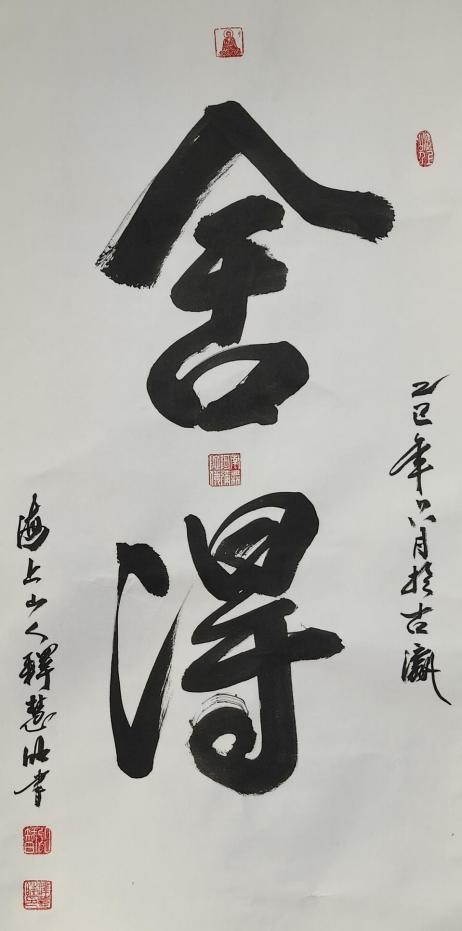 舍得
乙巳年六月于古瀛
海上山人释慧明书